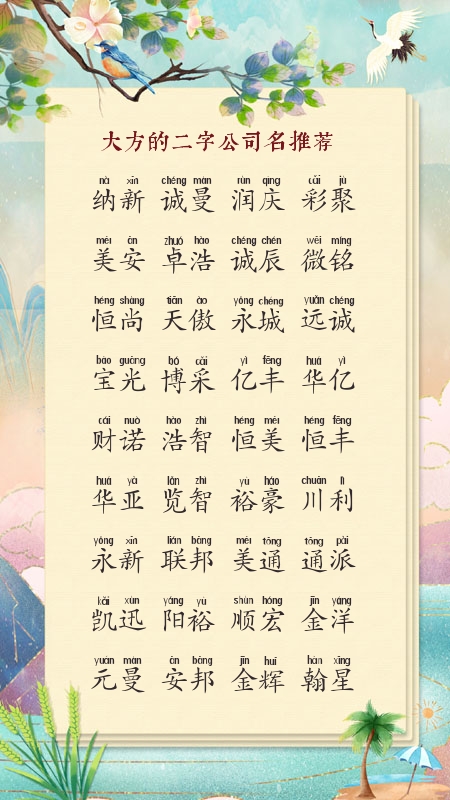 大方的二字公司名推荐
nà xīn chéng màn rùn qìng cǎi jù
纳新 诚曼 润庆 彩聚
měi ān zhuó hào chéng chén wēi míng
美安 卓浩 诚辰 微铭
héng shàng tiān ào yǒng chéng yuǎn chéng
恒尚 天傲 永城 远诚
bǎo guāng bó cǎi yì fēng huá yì
宝光 博采 亿丰 华亿
cái nuò hào zhì héng měi héng fēng
财诺 浩智 恒美 恒丰
huá yà lǎn zhì yù háo chuān lì
华亚 览智 裕豪 川利
yǒng xīn lián bāng měi tōng tōng pài
永新 联邦 美通 通派
kǎi xùn yáng yù shùn hóng jīn yáng
凯迅 阳裕 顺宏 金洋
yuán màn ān bāng jīn huī hàn xīng
元曼 安邦 金辉 翰星